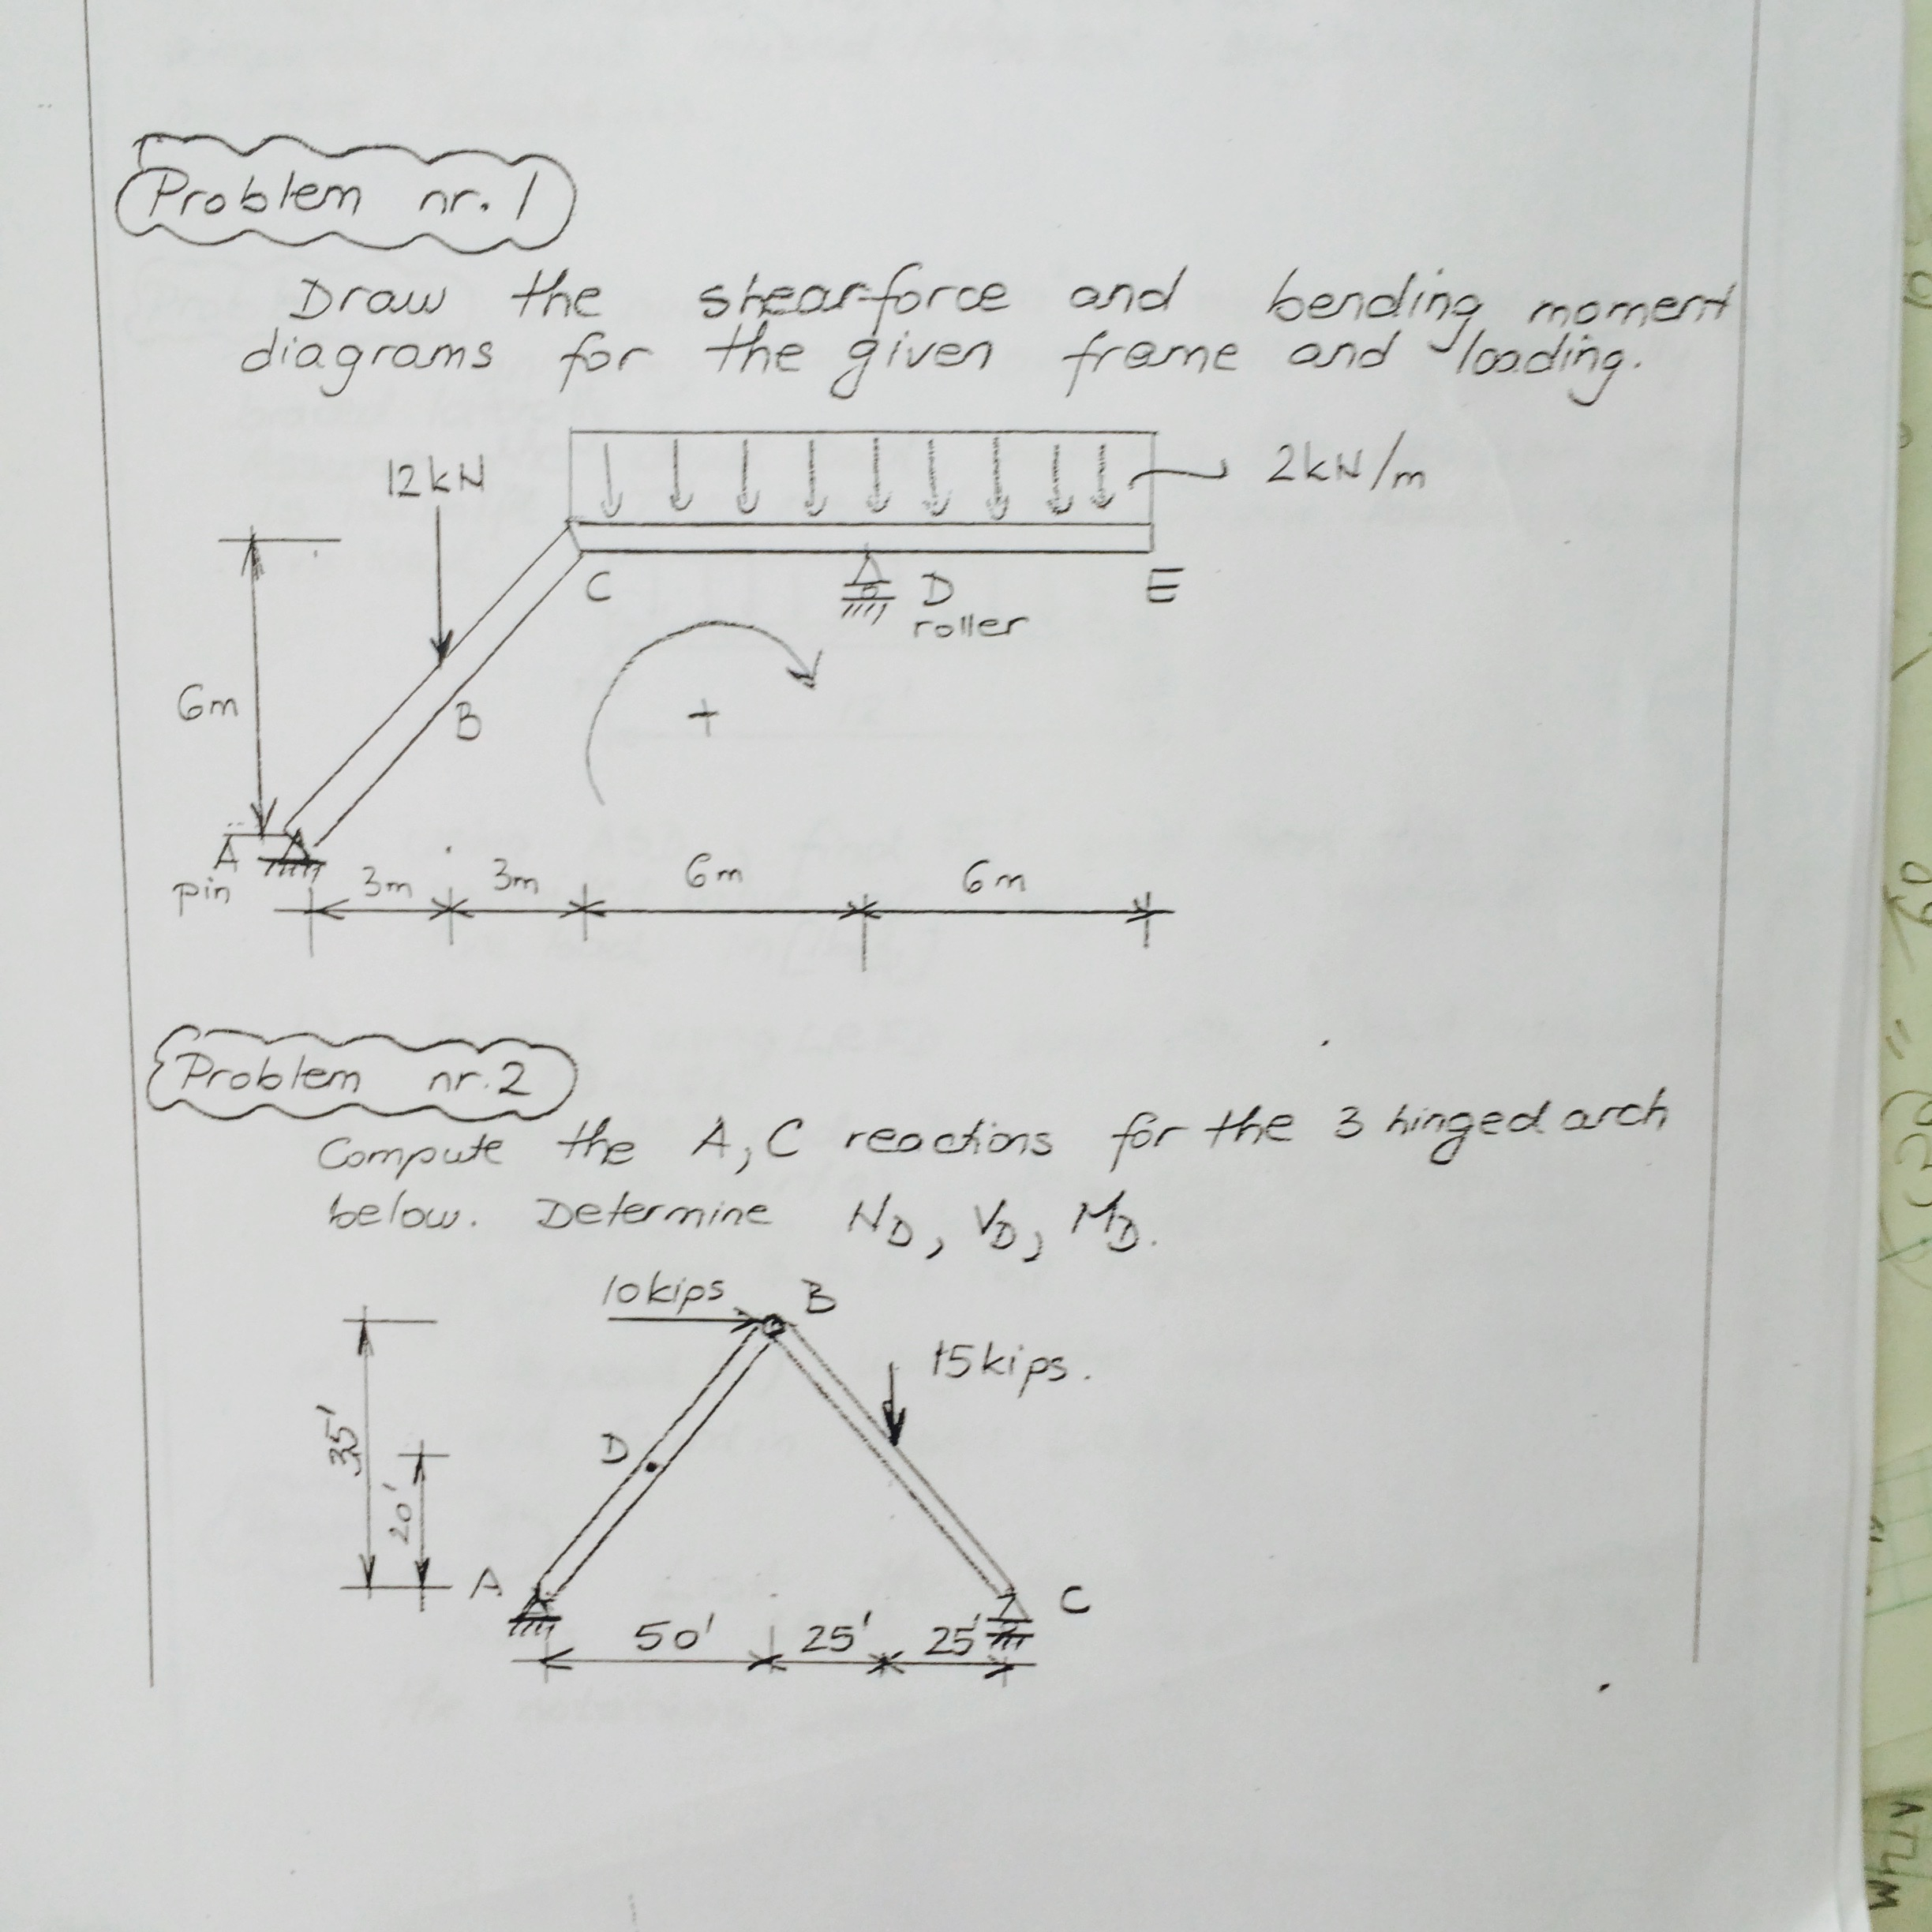 Problem nr. 1
Draw the shear force and bending moment
diagrams for the given frame and loading.
12kN
2kN/m
C
D
E
roller
6m
B
+
A
pin
3m
3m
6m
6m
Problem nr. 2
Compute the A, C reactions for the 3 hinged arch
below. Determine N_D, V_D, M_D.
10kips
B
15kips.
35'
D
20'
A
C
50'
25'
25'